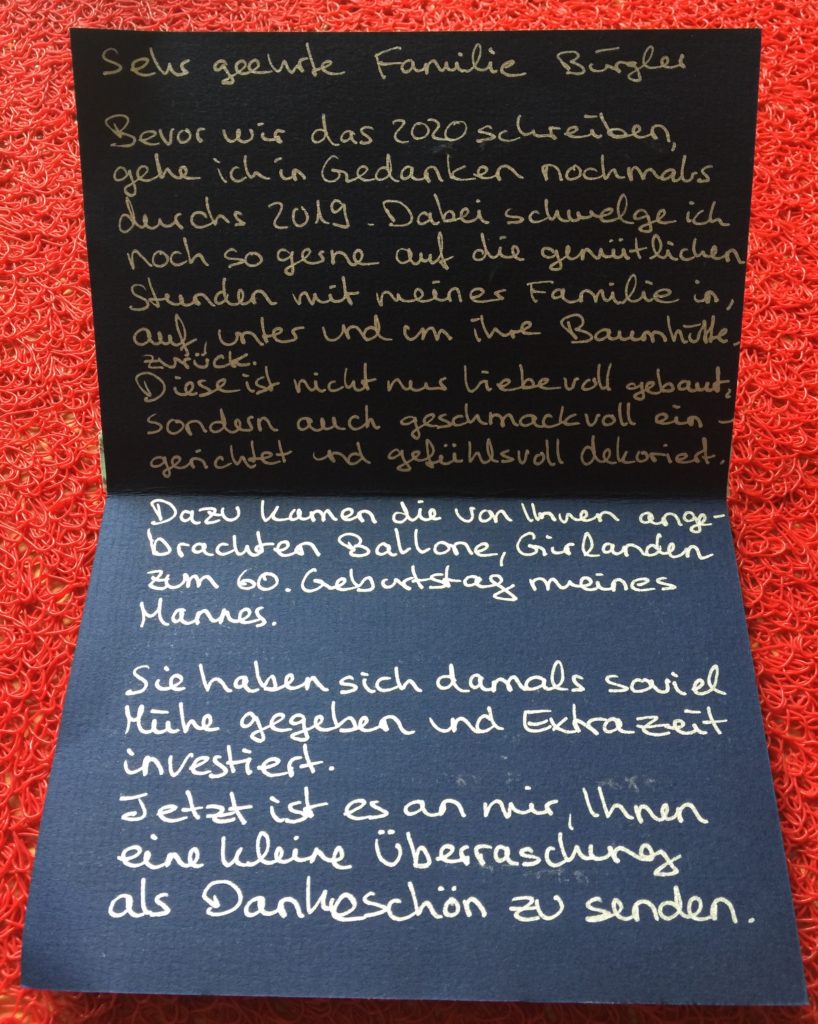 Sehr geehrte Familie Bürgler
Bevor wir das 2020 schreiben,
gehe ich in Gedanken nochmals
durchs 2019. Dabei schwelge ich
noch so gerne auf die gemütlichen
Stunden mit meiner Familie in,
auf, unter und um ihre Baumhütte
zurück.
Diese ist nicht nur liebevoll gebaut,
sondern auch geschmackvoll ein-
gerichtet und gefühlsvoll dekoriert.
Dazu kamen die von Ihnen ange-
brachten Ballone, Girlanden
zum 60. Geburtstag meines
Mannes.
Sie haben sich damals soviel
Mühe gegeben und Extrazeit
investiert.
Jetzt ist es an mir, Ihnen
eine kleine Überraschung
als Dankeschön zu senden.